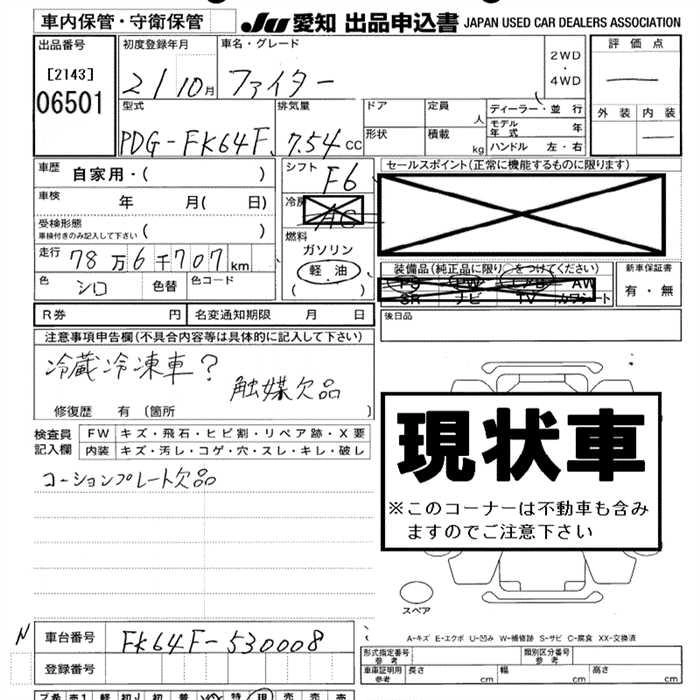 車内保管・守衛保管 JU 愛知 出品申込書 JAPAN USED CAR DEALERS ASSOCIATION
出品番号 初度登録年月 車名・グレード 2WD・4WD 評価点
[2143] 06501 21 10月 ファイター
型式 排気量 ドア 定員 人 ディーラー・並行 外装 内装
PDG-FK64F 7.54cc 形状 積載 kg モデル年式 年
ハンドル 左・右
車歴 自家用・( ) シフト F6 セールスポイント(正常に機能するものに限ります)
車検 年 月( 日) 冷房 AC
受検形態 車検付きのみ記入して下さい ( ) 燃料 ガソリン
走行 78万6千707km 軽・油 装備品(純正品に限り○をつけてください) 新車保証書
色 シロ 色替 色コード PS PW AW 有・無
SR ナビ TV カワシート
R券 円 名変通知期限 月 日 後日品
注意事項申告欄(不具合内容等は具体的に記入して下さい)
冷蔵冷凍車?
触媒欠品
修復歴 有 〔箇所 〕
検査員記入欄 FW キズ・飛石・ヒビ割・リペア跡・X要
内装 キズ・汚レ・コゲ・穴・スレ・キレ・破レ
コーションプレート欠品
現状車
※このコーナーは不動車も含みますのでご注意下さい
スペア
A-キズ E-エクボ U-凹み W-補修跡 S-サビ C-腐食 XX-交換済
N 車台番号 FK64F-530008
登録番号
型式指定番号 参考 類別区分番号 参考
車庫証明用 参考 長さ cm 幅 cm 高さ cm